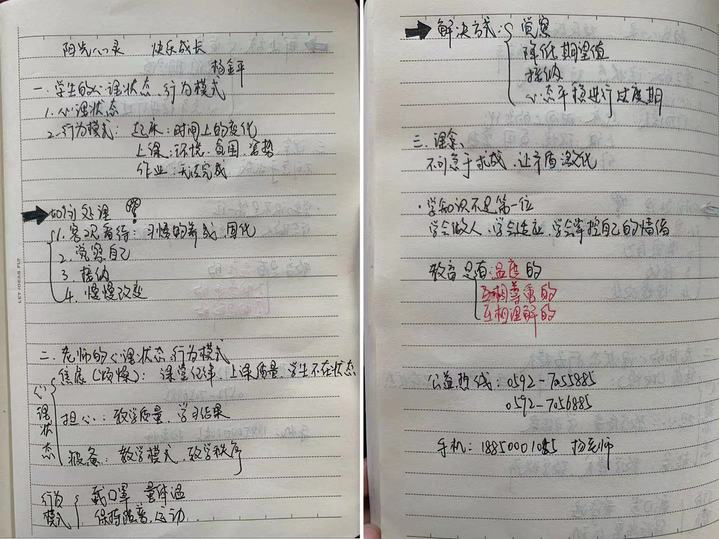 阳光心灵 快乐成长
杨金平
一.学生的心理状态、行为模式
1.心理状态
2.行为模式: 起床:时间上的变化
上课:环境、氛围、姿势
作业:无法完成
如何处理?
1.客观看待:习惯的养成、固化
2.觉察自己
3.接纳
4.慢慢改变
二.老师的心理状态、行为模式
心理状态
焦虑(烦燥):课堂纪律、上课质量、学生不在状态
担心:教学质量、学习结果
报备:教学模式、教学秩序
行为模式
戴口罩 量体温
保持距离、运动...
解决方式: 觉察
降低期望值
接纳
心态平稳进行过度期
三.理念、
不可急于求成,让矛盾激化
·学知识不是第一位
学会做人、学会适应、学会掌控自己的情绪
教育是有温度的
互相尊重的
互相理解的
公益热线:0592-7055885
0592-7056885
手机: 杨老师
LET IDEAS FLY